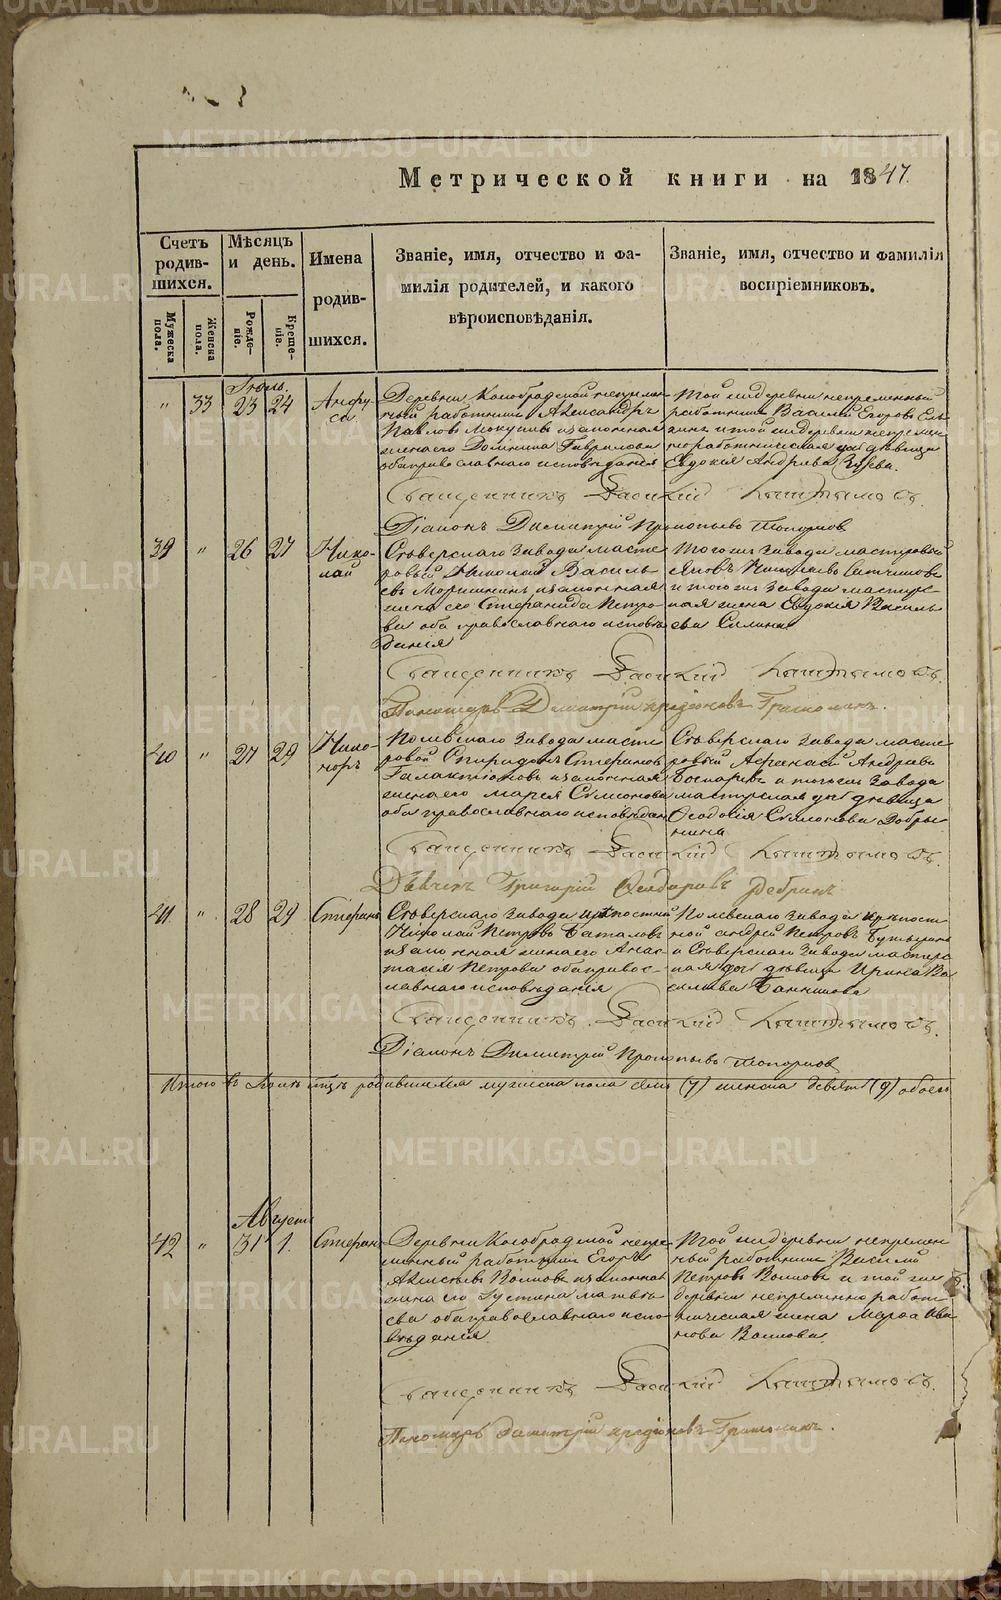 Метрической книги на 1847.
Счетъ родив-шихся.
Мѣсяцъ и день.
Имена родив-шихся.
Званіе, имя, отчество и фа-
милія родителей, и какого
вѣроисповѣданія.
Званіе, имя, отчество и фамилія
воспріемниковъ.
Мужеска пола.
Женска пола.
Рожде-ніе.
Креще-ніе.
Іюль
" 33 23 24 Анфу-са
Деревни Кособродской непремѣн
ный работникъ Александръ
Павловъ законная
жена его Домника Гаврилова
оба православнаго исповѣданія
Той же деревни непременный
работникъ Василій Егоровъ
и той же деревни непремен
но работническая дѣвица
Евдокія Андреева Зуева.
Священникъ Василій Кыштымовъ
Діаконъ Димитрій Прокопьевъ Топорковъ
39 " 26 27 Нико-лай
Сѣверскаго завода масте
ровый Николай Василь
евъ законная
жена его Степанида Петро
ва оба православнаго исповѣ
данія
Того же завода мастеровой
Яковъ
и того же завода мастерс
кая жена Евдокія Василь
ева
Священникъ Василій Кыштымовъ.
Пономарь Димитрій
40 " 27 29 Нико-норъ
Полевскаго завода масте
ровой Спиридонъ Степановъ
Галактіоновъ законная
жена его Марія Симеонова
оба православнаго исповѣдан
Сѣверскаго завода масте
ровый Афанасій Андреевъ
и того же завода
мастерская дѣвица
Ѳеодосія Симонова Добры
нина
Священникъ Василій Кыштымовъ.
Дьячекъ Григорій Ѳеодоровъ
41 " 28 29 Стефанъ
Сѣверскаго завода крѣпостный
Николай Петровъ Баталовъ
законная жена его Анас
тасія Петрова оба правос
лавнаго исповѣданія
Полевскаго завода крѣпост
ной Андрей Петровъ
и Сѣверскаго завода мастерс
кая дѣвица Ирина Ва
сильева
Священникъ Василій Кыштымовъ.
Діаконъ Димитрій Прокопьевъ Топорковъ
Итого въ Іюлѣ м-цѣ родившихся мужеска пола семь (7) женска девять (9) обоего
Августъ
42 " 31 1. Стефанъ
Деревни Кособродской непре
менный работникъ Егоръ
Алексѣевъ Волковъ законная
жена его Іустина Матвѣе
ева оба православнаго испо
вѣданія
Той же деревни непремен
ный работникъ Василій
Петровъ Волковъ и той же
деревни непременно работ
ническая жена Марѳа Ива
нова Волкова.
Священникъ Василій Кыштымовъ.
Пономарь Димитрій